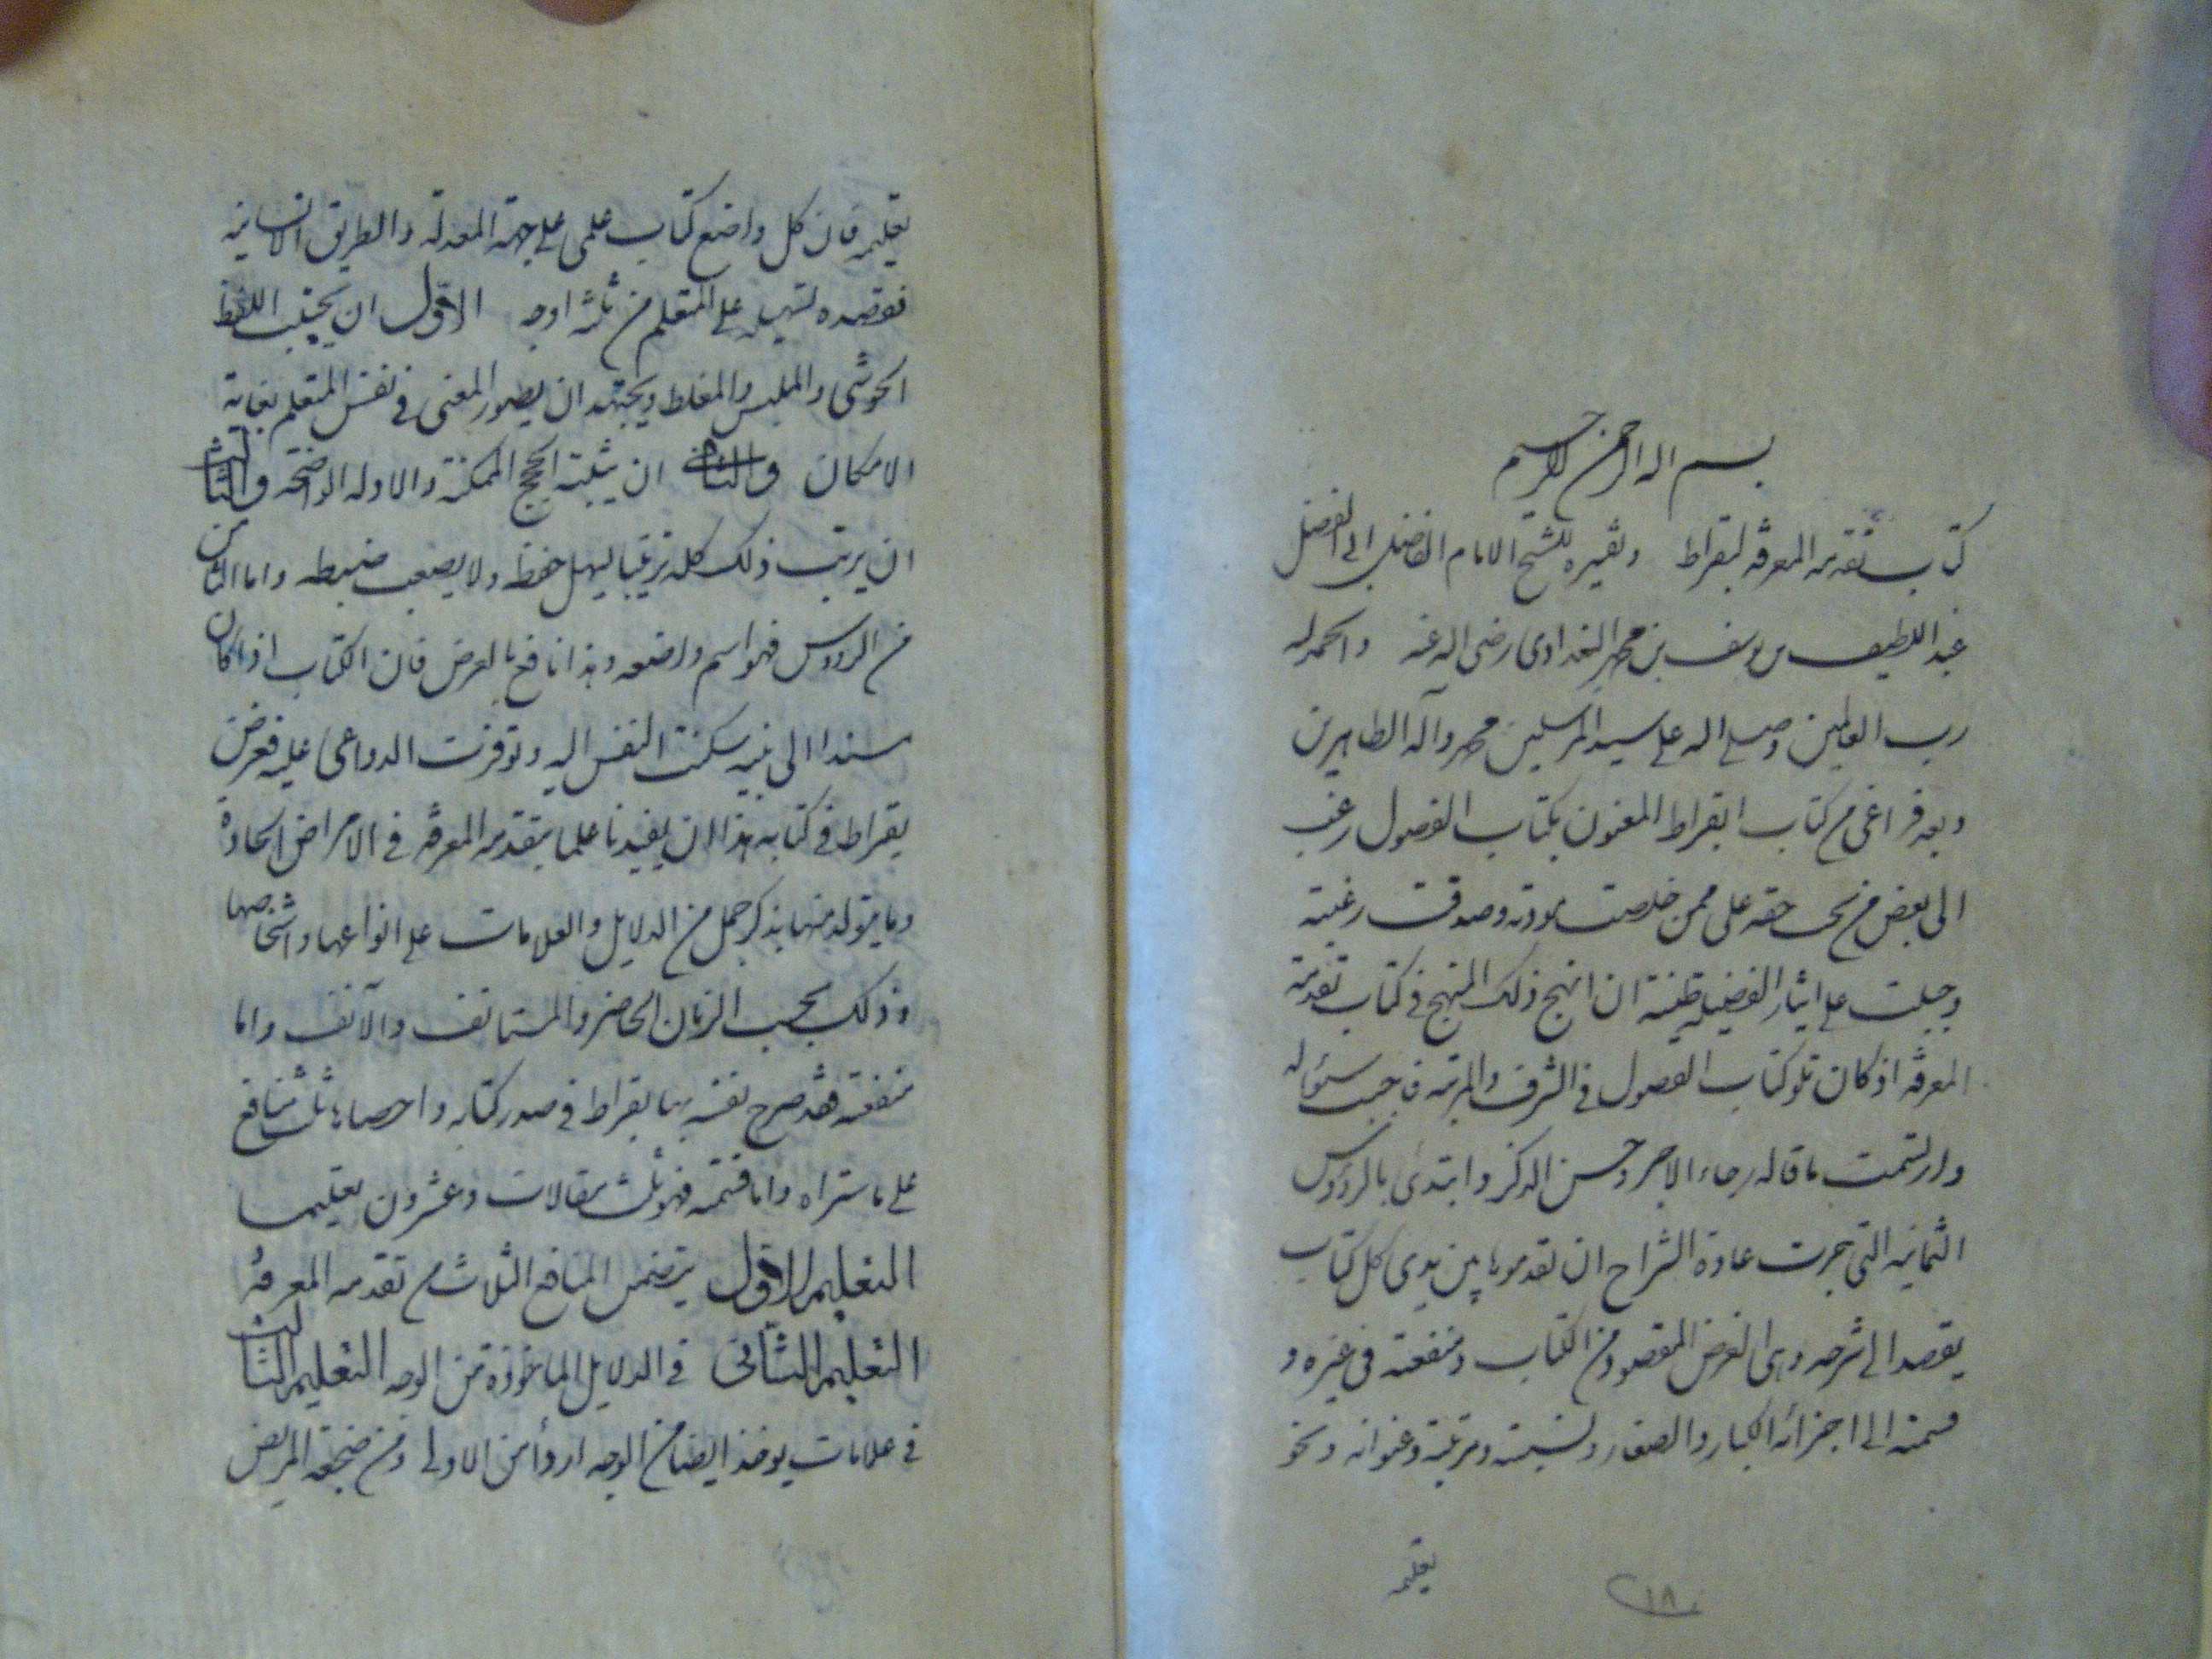 بسم الله الرحمن الرحيم
كتاب تقدمه المعرفه لبقراط وتفسيره للشيخ الامام الفاضل ابى الفضل
عبد اللطيف بن يوسف بن محمد البغدادى رضى الله عنه والحمد لله
رب العالمين وصلى الله على سيد المرسلين محمد وآله الطاهرين
وبعد فراغى من كتاب ابقراط المعنون بكتاب الفصول رغب
الى بعض من يجب حقه على ممن خلصت مودته وصدقت رغبته
وجبلت على ايثار الفضيله طينته ان انهج ذلك المنهج فى كتاب تقدمة
المعرفه اذ كان تلو كتاب الفصول فى الشرف والمرتبه فاجبت سؤاله
وارتسمت ما قاله رجاء الاجر وحسن الذكر وابتدئ بالرؤوس
الثمانيه التى جرت عادة الشراح ان تقدموها بين يدى كل كتاب
يقصد الى شرحه وهى الغرض المقصود من الكتاب ومنفعته فى غيره و
قسمته الى اجزائه الكبار والصغار ونسبته ومرتبته وعنوانه ونحو
تعليمه
١٨٠
تعليمه فان كل واضع كتاب علمى على جهة المعدلة والطريق الانسانيه
فقصده تسهيله على المتعلم من ثلثه اوجه الاول ان يجتنب اللفظ
الحوشى والملبس والمغلط ويجتهد ان يصور المعنى فى نفس المتعلم بغاية
الامكان والثانى ان يثبته الحجج الممكنة والادله الواضحة والثالث
ان يرتب ذلك كله ترتيبا ليسهل حفظه ولا يصعب ضبطه واما الثامن
من الرووس فهو اسم واضعه وهذا نافع بالعرض فان الكتاب اذا كان
مسندا الى نبيه سكنت النفس اليه وتوفرت الدواعى عليه فغرض
بقراط فى كتابه هذا ان يفيدنا علما بتقدمه المعرفه فى الامراض الحادة
وما يتولد منها بذكر جمل من الدلايل والعلامات على انواعها واشخاصها
وذلك بحسب الزمان الحاضر والمستانف والآنف واما
منفعته فقد صرح نفسه بها بقراط فى صدر كتابه واحصاها ثلث منافع
على ما ستراه واما قسمته فهو ثلث مقالات وعشرون تعليما
التعليم الاول يتضمن المنافع الثلاث من تقدمه المعرفه
التعليم الثانى فى الدلايل الماخوذة من الوجه التعليم الثالث
فى علامات يوخذ ايضا من الوجه اردأ من الاولى ومن ضجعة المريض